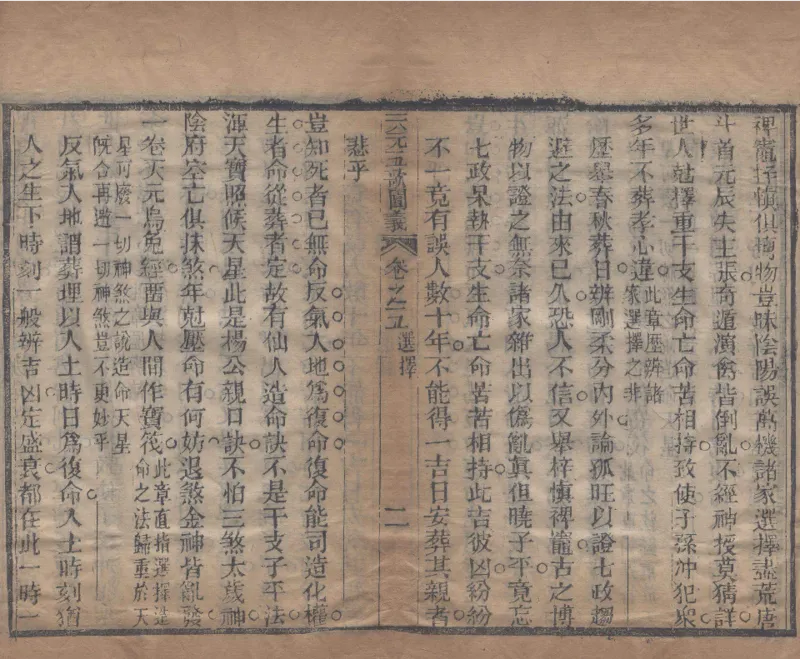 裨竈梓慎俱博物豈昧陰陽誤萬機諸家選擇盡荒唐
斗首元辰失主張奇遁演禽皆倒亂不經神授莫猜詳
世人尅擇重干支生命亡命苦相持致使子孫冲犯衆
多年不葬孝心違
此章歷辨諸
家選擇之非
歷舉春秋葬日辨剛柔分內外論孤旺以證七政趨
避之法由來已久恐人不信又舉梓慎裨竈古之博
物以證之無奈諸家雜出以僞亂真但曉子平竟忘
七政呆執干支生命亡命苦苦相持此吉彼凶紛紛
不一竟有誤人數十年不能得一吉日安葬其親者
元五訣圖義 卷之五 選擇 二
悲乎
豈知死者已無命反氣入地爲復命復命能司造化權
生者命從葬者定故有仙人造命訣不是干支子平法
渾天寶照候天星此是楊公親口訣不怕三煞太歲神
陰府空亡俱抹煞年尅壓命有何妨退煞金神皆亂發
一卷天元烏兔經畱與人間作寶筏
此章直指選擇造
命之法歸重於天
星可廢一切神煞之說造命天星
既合再遭一切神煞豈不更妙乎
反氣入地謂葬埋以入土時日爲復命入土時刻猶
人之生下時刻一般辨吉凶定盛衰都在此一時一